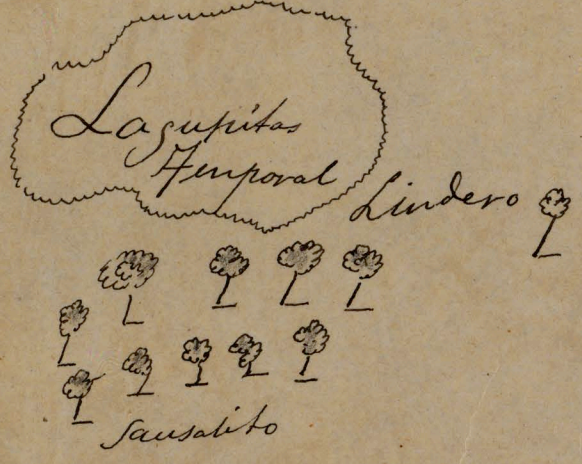 Lagunitas
Temporal
Lindero
Sausalito